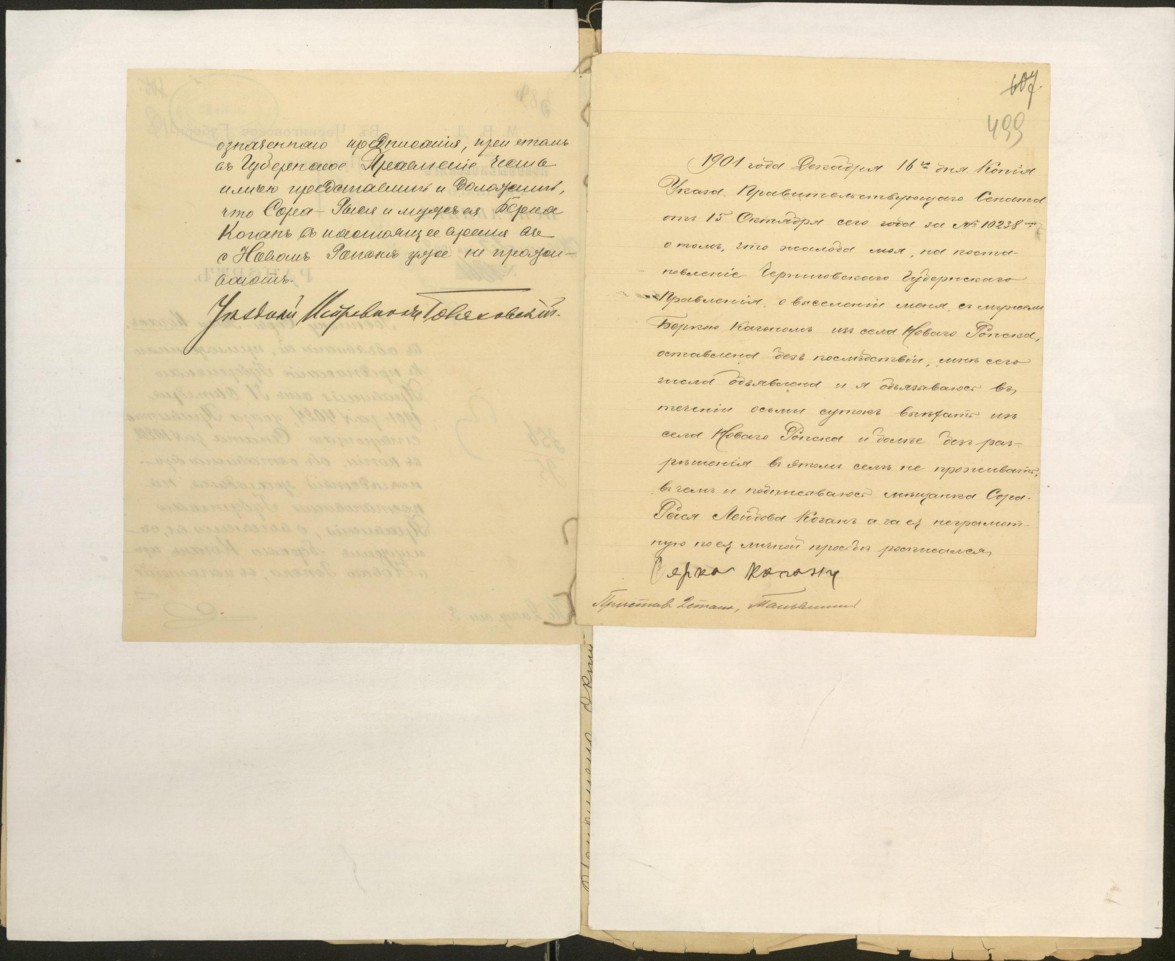 означеннаго предписанія, при этомъ
въ Губернское Правленіе честь
имѣю представить и доложить,
что Сора-Рися и мужъ ея Берка
Коганъ въ настоящее время въ
с Новомъ Ропскѣ уже не прожи-
ваютъ.
Уѣздный Исправникъ
607.
499
1901 года Декабря 16го дня Копія
Указа Правительствующаго Сената
отъ 15 Октября сего года за № 10238
о томъ, что жалоба моя, на поста-
новленіе Черниговскаго Губернскаго
Правленія, о выселеніи меня, съ мужемъ
Беркою Каганомъ изъ села Новаго Ропска,
оставлена безъ послѣдствій, мнѣ сего
числа объявлена и я обязываюсь въ
теченіи осьми сутокъ выѣхать изъ
села Новаго Ропска и болѣе безъ раз-
рѣшенія въ этомъ селѣ не проживать,
въ чемъ и подписываюсь мѣщанка Сора-
Рися Лейбова Коганъ а за ея неграмот-
ную по ея личной просьбѣ росписался,
Берка Каганъ
Приставъ 2 стана,